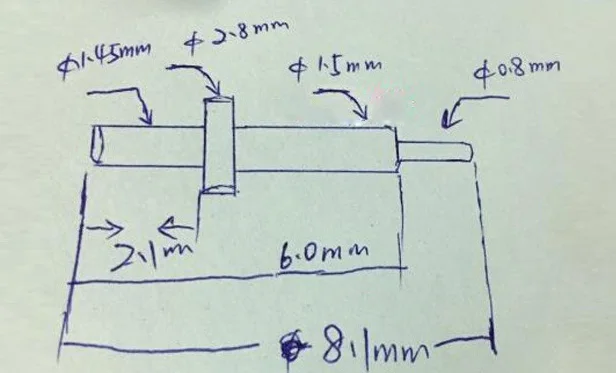 ϕ1.45mm
ϕ 2.8mm
ϕ 1.5mm
ϕ0.8mm
2.1mm
6.0mm
8.1mm